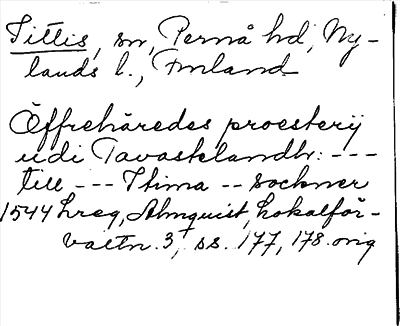 Sittis, sn, Pernå hd, Ny-
lands l., Finland
Öffrehäredes presterij
udi Tavastelandhr: ---
till --- Itima -- sockner
1544 hreg, Almquist, Lokalför-
valtn. 3, ss. 177, 178. orig